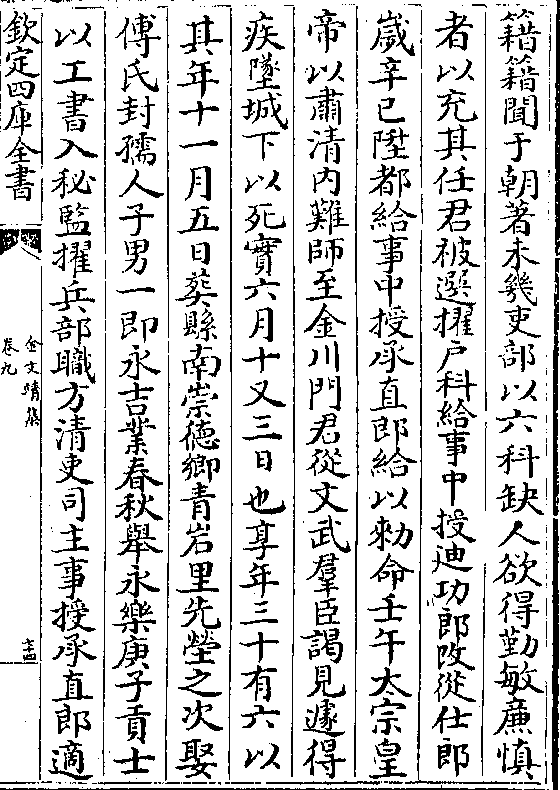 籍籍聞于朝著未幾吏部以六科缺人欲得勤敏廉慎
者以充其任君被選擢戶科給事中授迪功郎改從仕郎
歲辛巳陞都給事中授承直郎給以勑命壬午太宗皇
帝以肅清内難師至金川門君從文武羣臣謁見遽得
疾墜城下以死實六月十又三日也享年三十有六以
其年十一月五日葬縣南崇德鄉青岩里先塋之次娶
傅氏封孺人子男一即永吉業春秋舉永樂庚子貢士
以工書入秘監擢兵部職方清吏司主事授承直郎適
欽定四庫全書
金文靖集
卷九
十四